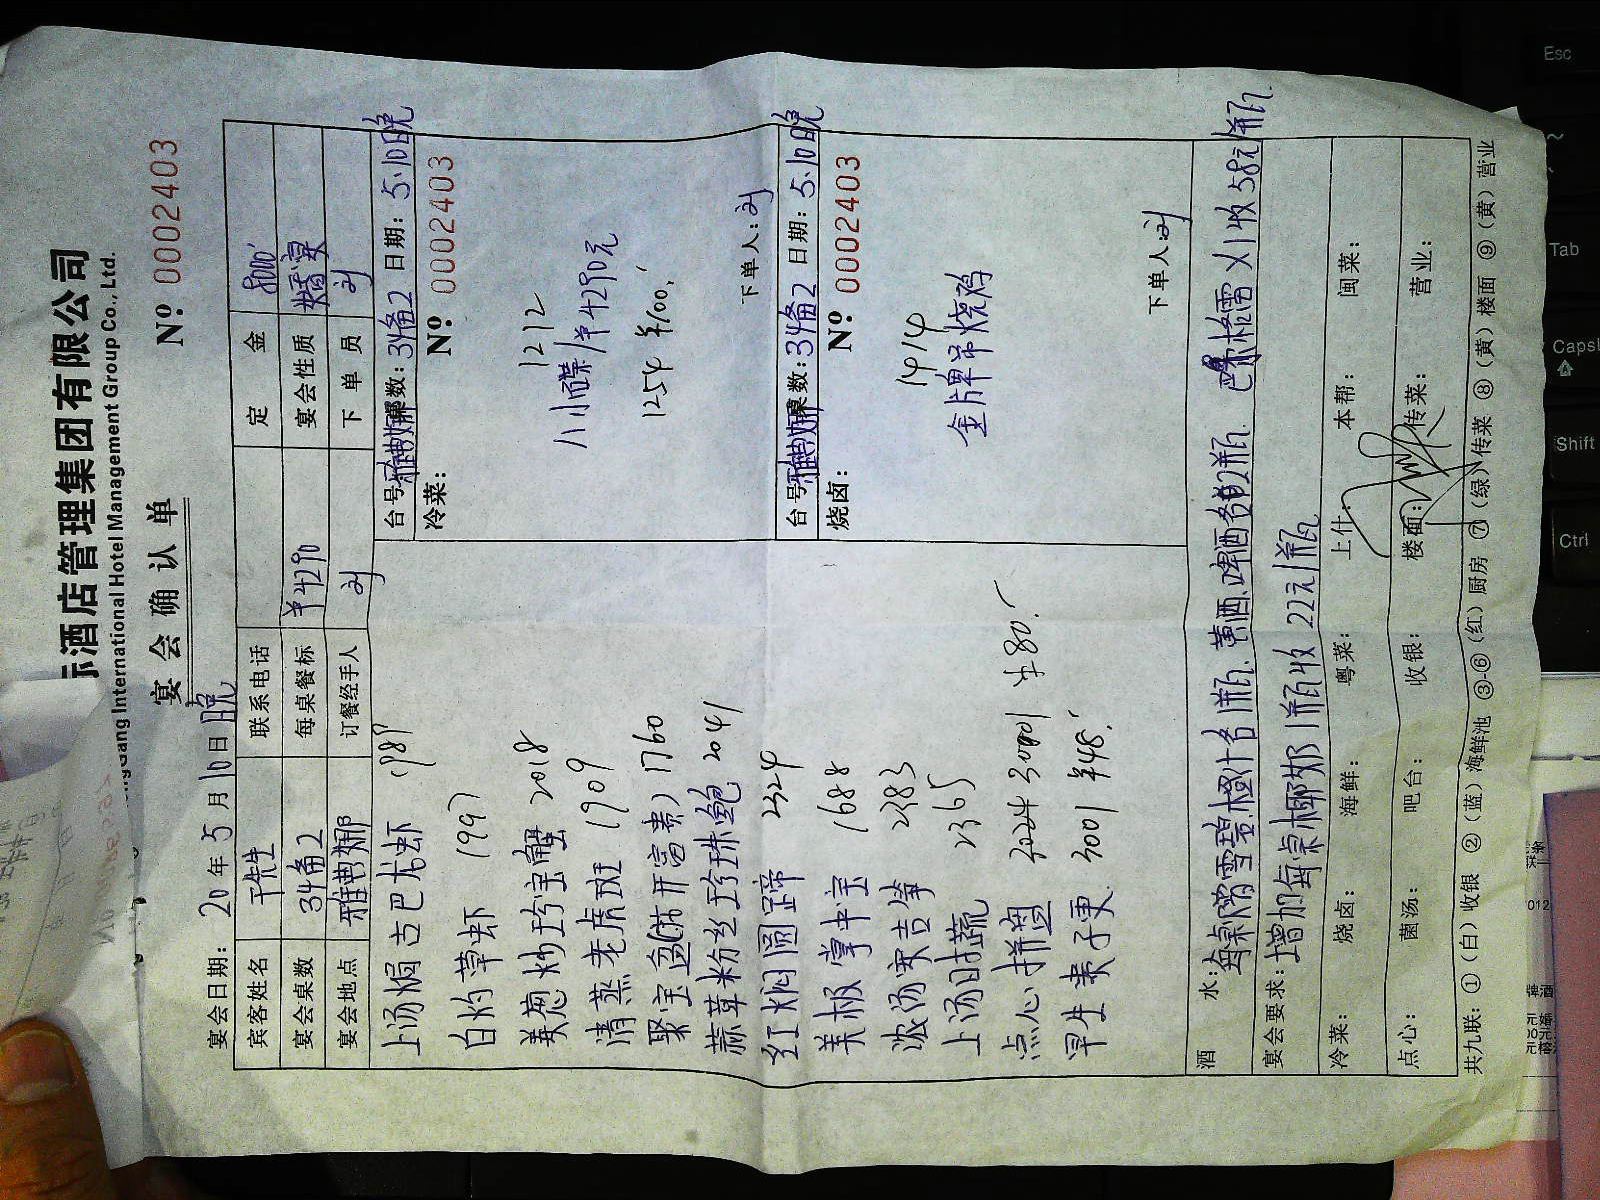 际酒店管理集团有限公司
International Hotel Management Group Co., Ltd.
宴会确认单
Nº 0002403
宴会日期: 20 年 5 月 10 日 晚
宾客姓名 于先生 联系电话 定金 8000
宴会桌数 34备2 每桌餐标 ¥4290 宴会性质 婚宴
宴会地点 雅典娜 订餐经手人 刘 下单员 刘
上汤焗古巴龙虾 1989
白灼草虾 1997
姜葱炒珍宝蟹 2018
清蒸老虎斑 1909
聚宝盆(花开富贵) 1760
蒜茸粉丝珍珠鲍 2041
红焖圆蹄 2324
美极掌中宝 1688
浓汤灼吉笋 2383
上汤时蔬 2365
点心拼盘 3001 ¥80
早生贵子更 3001 ¥48
台号: 雅典娜 桌数: 34备2 日期: 5.10晚
冷菜: Nº 0002403
1212
八小碟/¥4290元
1254 ¥100
下单人: 刘
台号: 雅典娜 桌数: 34备2 日期: 5.10晚
烧卤: Nº 0002403
1414
金牌吊烧鸡
下单人: 刘
酒水: 每桌赠雪碧.橙汁各1瓶. 黄酒.啤酒各2瓶. 收58元/瓶
宴会要求: 增加每桌椰奶1瓶收22元/瓶
冷菜: 烧卤: 海鲜: 粤菜: 上什: 本帮: 闽菜:
点心: 菌汤: 吧台: 收银: 楼面: 传菜: 营业:
共九联: ①(白)收银 ②(蓝)海鲜池 ③-⑥(红)厨房 ⑦(绿)传菜 ⑧(黄)楼面 ⑨(黄)营业
Esc
Tab
Caps
Shift
Ctrl